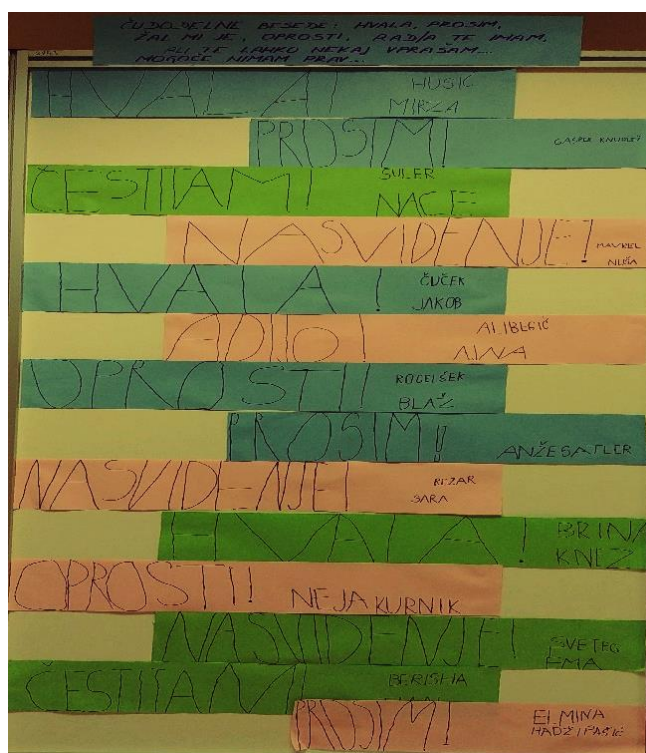 ČUDODELNE BESEDE: HVALA, PROSIM,
ŽAL MI JE, OPROSTI, RAD/A TE IMAM,
ALI TE LAHKO NEKAJ VPRAŠAM...
MOGOČE NIMAM PRAV...
HVALA! HUSIĆ
MIRZA
PROSIM!
ČESTITAM! ŠULER
NACE
NASVIDENJE!
HVALA! ČUČEK
JAKOB
ADIJO! ALIBEGIČ
AJNA
OPROSTI! ROGELŠEK
BLAŽ
PROSIM!! ANŽE SATLER
NASVIDENJE! REZAR
SARA
HVALA! BRINA
KNEZ
OPROSTI! NEJA KURNIK
NASVIDENJE! SVETEC
EMA
ČESTITAM! BERISHA
PROSIM! ELMINA
HADŽIPAŠIĆ